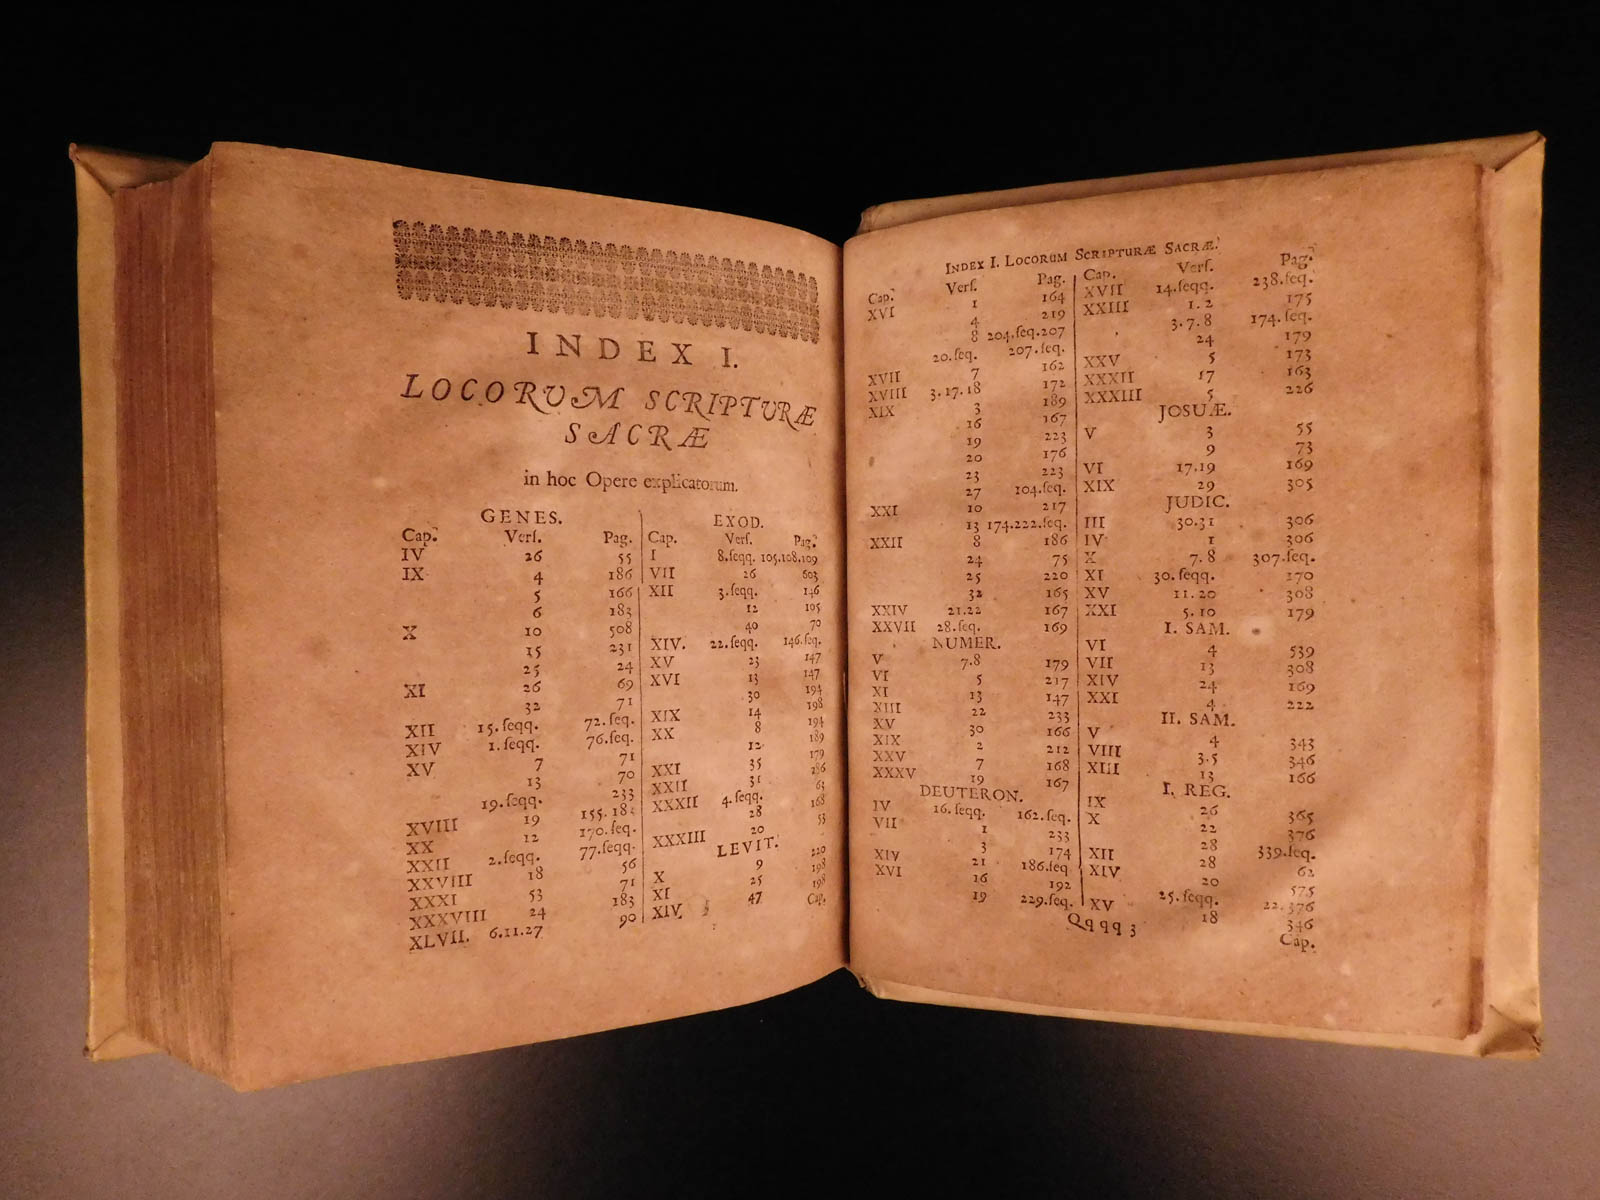 INDEX I.
LOCORUM SCRIPTURÆ
SACRÆ
in hoc Opere explicatorum.
GENES.
Cap. Vers. Pag.
IV 26 55
IX 4 186
5 166
6 183
X 10 508
15 231
25 24
XI 26 69
32 71
XII 15.seqq. 72.seq.
XIV 1.seqq. 76.seq.
XV 7 71
13 70
19.seqq. 233
XVIII 19 155.18
XX 12 170.seq.
XXII 2.seqq. 77.seqq.
XXVIII 18 56
XXXI 53 71
XXXVIII 24 183
XLVII. 6.11.27 90
EXOD.
Cap. Vers. Pag.
I 8.seqq. 105.108.109
VII 26 603
XII 3.seqq. 146
12 105
40 70
XIV. 22.seqq. 146.seq.
XV 23 147
XVI 13 147
30 194
XIX 14 198
XX 8 194
12 189
XXI 35 179
XXII 31 286
XXXII 4.seqq. 63
28 168
XXXIII 20 53
LEVIT.
X 9 220
XI 25 198
XIV 47 198
Cap.
INDEX I. LOCORUM SCRIPTURÆ SACRÆ.
Cap. Vers. Pag.
XVI 1 164
4 219
8 204.seq.207
20.seq. 207.seq.
XVII 7 162
XVIII 3.17.18 172
XIX 3 189
16 167
19 223
20 176
23 223
27 104.seq.
XXI 10 217
13 174.222.seq.
XXII 8 186
24 75
25 220
32 165
XXIV 21.22 167
XXVII 28.seq. 169
NUMER.
V 7.8 179
VI 5 217
XI 13 147
XIII 22 233
XV 30 166
XIX 2 212
XXV 7 168
XXXV 19 167
DEUTERON.
IV 16.seqq. 162.seq.
VII 1 233
3 174
XIV 21 186.seq
XVI 16 192
19 229.seq.
Cap. Vers. Pag.
XVII 14.seqq. 238.seq.
XXIII 1.2 175
3.7.8 174.seq.
24 179
XXV 5 173
XXXII 17 163
XXXIII 5 226
JOSUÆ.
V 3 55
9 73
VI 17.19 169
XIX 29 305
JUDIC.
III 30.31 306
IV 1 306
X 7.8 307.seq.
XI 30.seqq. 170
XV 11.20 308
XXI 5.10 179
I. SAM.
VI 4 539
VII 13 308
XIV 24 169
XXI 4 222
II. SAM.
V 4 343
VIII 3.5 346
XIII 13 166
I. REG.
IX 26 365
X 22 376
XII 28 339.seq.
XIV 28 62
20 575
XV 25.seqq. 22.376
18 346
Qqqq 3
Cap.